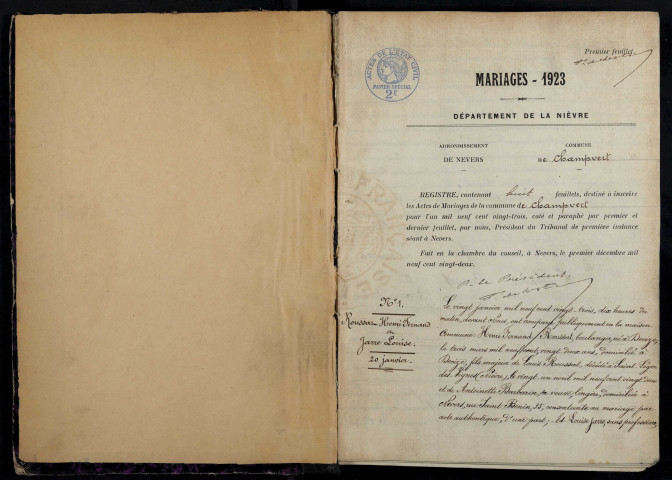 Premier feuillet.
ACTES DE L'ETAT CIVIL
PAPIER SPECIAL
2F
MARIAGES - 1923
DÉPARTEMENT DE LA NIÈVRE
ARRONDISSEMENT
DE NEVERS
COMMUNE
DE Champvert
REGISTRE, contenant huit feuillets, destiné à inscrire
les Actes de Mariages de la commune de Champvert
pour l'an mil neuf cent vingt-trois, coté et paraphé par premier et
dernier feuillet, par nous, Président du Tribunal de première instance
séant à Nevers.
Fait en la chambre du conseil, à Nevers, le premier décembre mil
neuf cent vingt-deux.
P. le Président,
N° 1.
Henri Fernand
Jarre Louise.
20 janvier.
Le vingt janvier mil neuf cent vingt trois, dix heures du
matin, devant Nous, ont comparu publiquement en la maison
commune: Henri Fernand Roussat, boulanger, né à
le trois mars mil neuf cent, vingt deux ans, domicilié à
fils majeur de Louis Roussat, décédé à Saint Léger
des Vignes, Nièvre, le vingt un
et de Antoinette sa veuve, lingère, domiciliée à
Nevers, rue Saint Bénin, 35, consentante au mariage par
acte authentique, d'une part; Et Louise Jarre, sans profession,